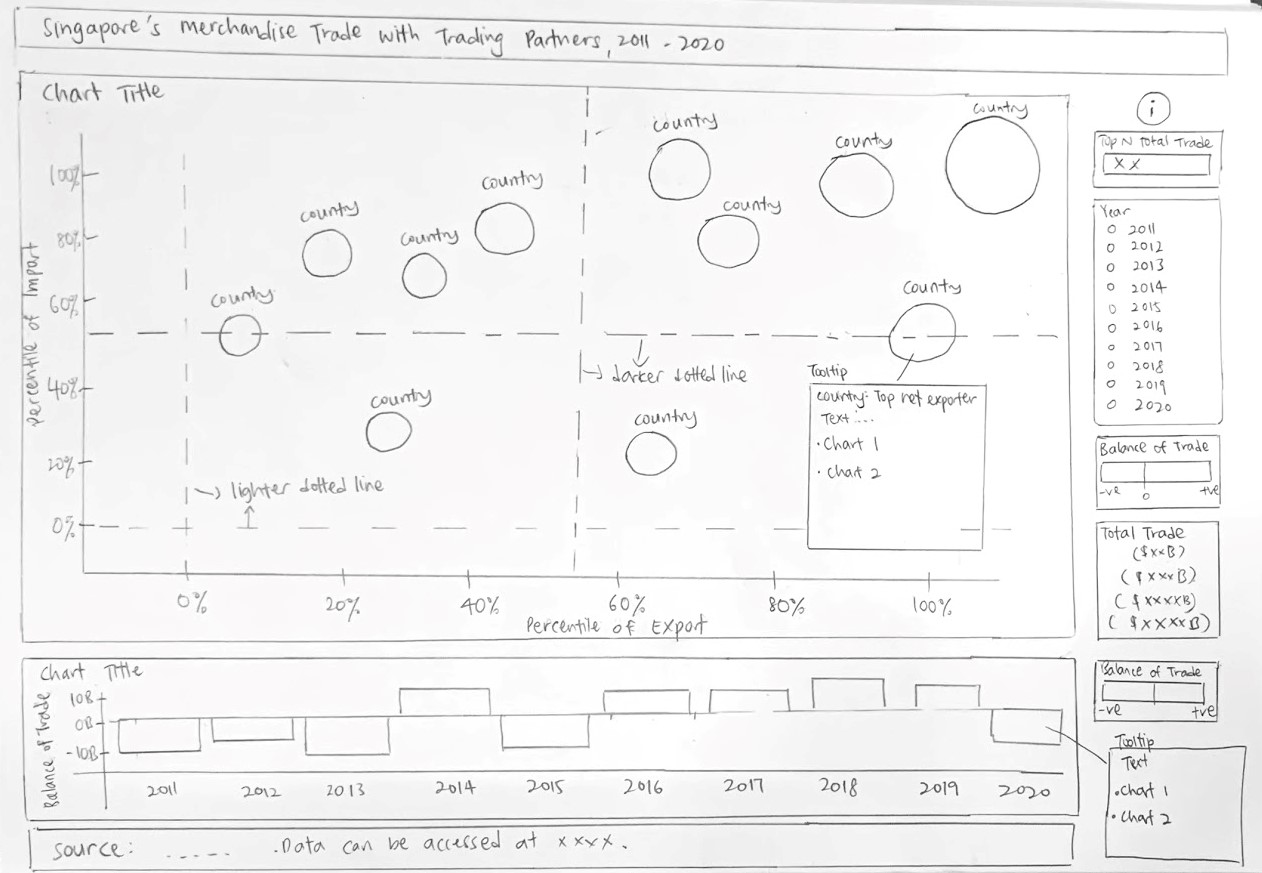 Singapore's Merchandise Trade with Trading Partners, 2011 - 2020
Chart Title
Country
Country
Country
Country
Country
Country
Country
Country
Country
Country
Country
Country
Percentile of Import
100%
80%
60%
40%
20%
0%
→ darker dotted line
→ lighter dotted line
Tooltip
Country: Top net exporter
Text ....
· Chart 1
· Chart 2
0%
20%
40%
60%
80%
100%
Percentile of Export
i
Top N Total Trade
XX
Year
2011
2012
2013
2014
2015
2016
2017
2018
2019
2020
Balance of Trade
-ve 0 +ve
Total Trade
($xxB)
($xxxB)
($xxxxB)
($xxxxB)
Chart Title
Balance of Trade
10B
0B
-10B
2011 2012 2013 2014 2015 2016 2017 2018 2019 2020
Balance of Trade
-ve +ve
Tooltip
Text
· Chart 1
· Chart 2
Source: ----- . Data can be accessed at xxxx.